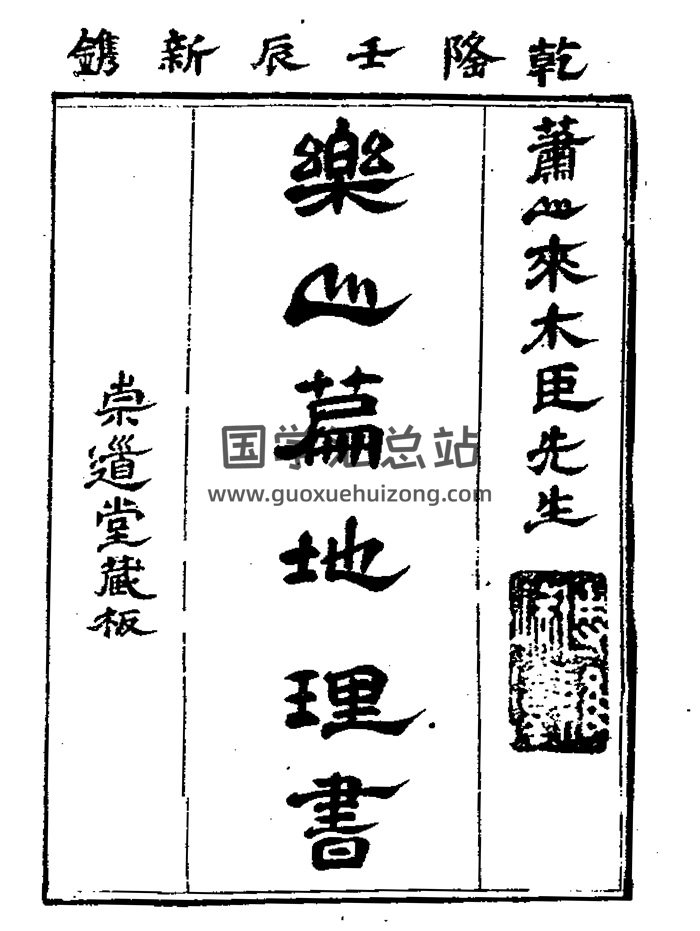 乾隆壬辰新鐫
蕭山來木臣先生
樂山篇地理書
崇道堂藏板
国学汇总站
www.guoxuehuizong.com